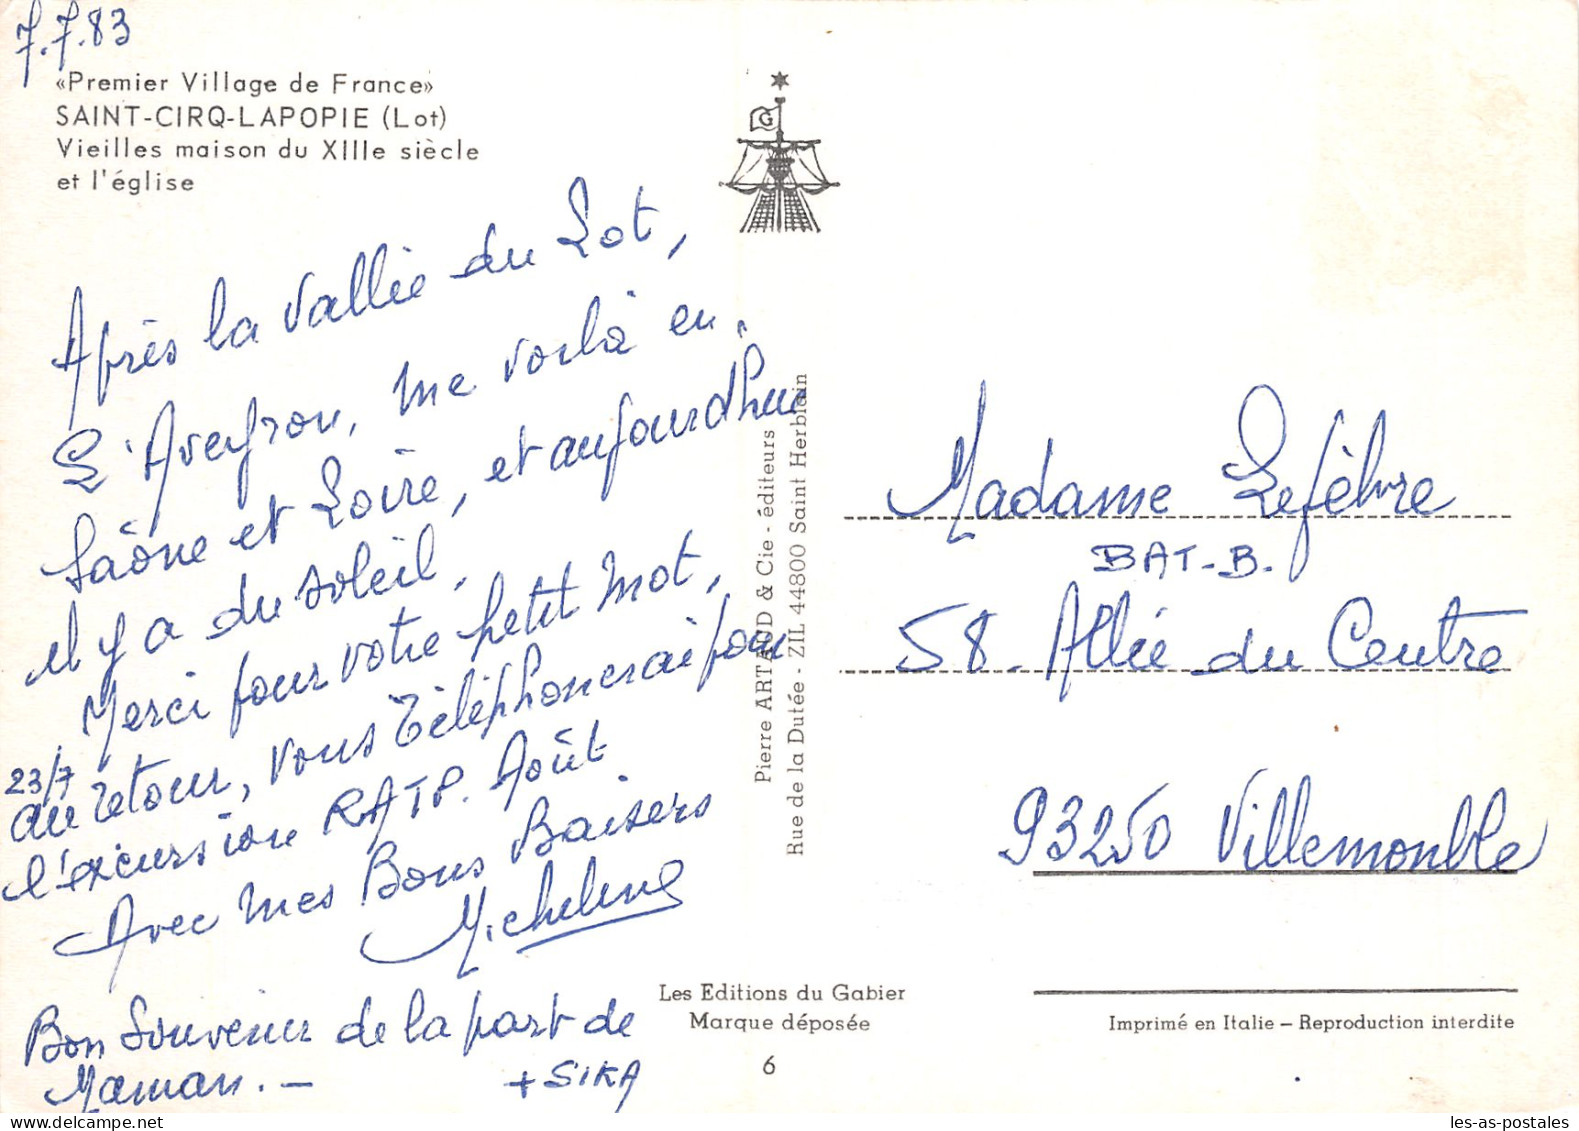 7.7.83
«Premier Village de France»
SAINT-CIRQ-LAPOPIE (Lot)
Vieilles maison du XIIIe siècle
et l'église
G
Après la vallée du Lot,
L'Aveyron, me voilà en
Saône et Loire, et aujourd'hui
il y a du soleil.
Merci pour votre petit mot,
23/7
au retour, vous téléphonerai pour
l'excursion RATP. Août
Avec mes Bons Baisers
Micheline
Bon Souvenir de la part de
Maman. —
+ SIKA
Pierre ARTAUD & Cie - éditeurs
Rue de la Dutée - ZIL 44800 Saint Herblain
Madame Lefèbvre
BAT-B.
58 - Allée du Centre
93250 Villemomble
Les Editions du Gabier
Marque déposée
6
Imprimé en Italie – Reproduction interdite
les-as-postales